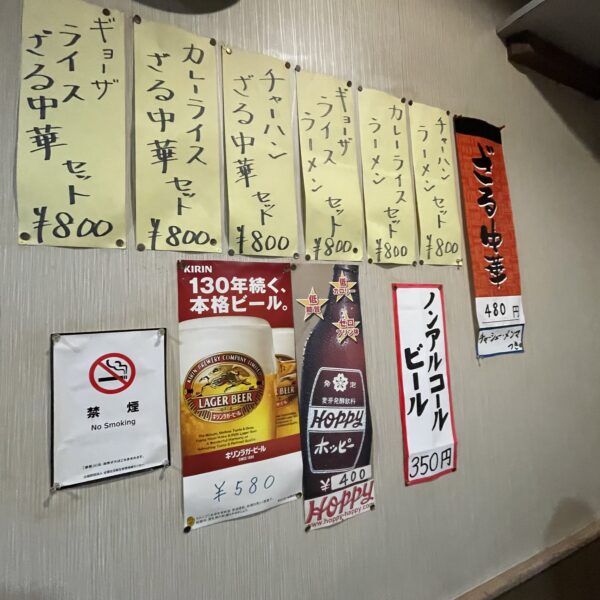 ギョーザ
ライス
ざる中華 セット
¥800
カレーライス
ざる中華 セット
¥800.
チャーハン
ざる中華 セット
¥800
ギョーザ
ライス
ラーメン セット
¥800
カレーライス
ラーメン セット
¥800
チャーハン
ラーメンセット
¥800
ざる中華
480円
チャーシューメンマ
つき
禁煙
No Smoking
KIRIN
130年続く、
本格ビール。
KIRIN BREWERY COMPANY
LAGER BEER
キリンラガービール
キリンラガービール
SINCE 1888
¥580
低カロリー
低糖質
ゼロプリン体
発泡
麦芽発酵飲料
HOPPY
ホッピー
¥400
HOPPY
www.hoppy-happy.co
ノンアルコール
ビール
350円